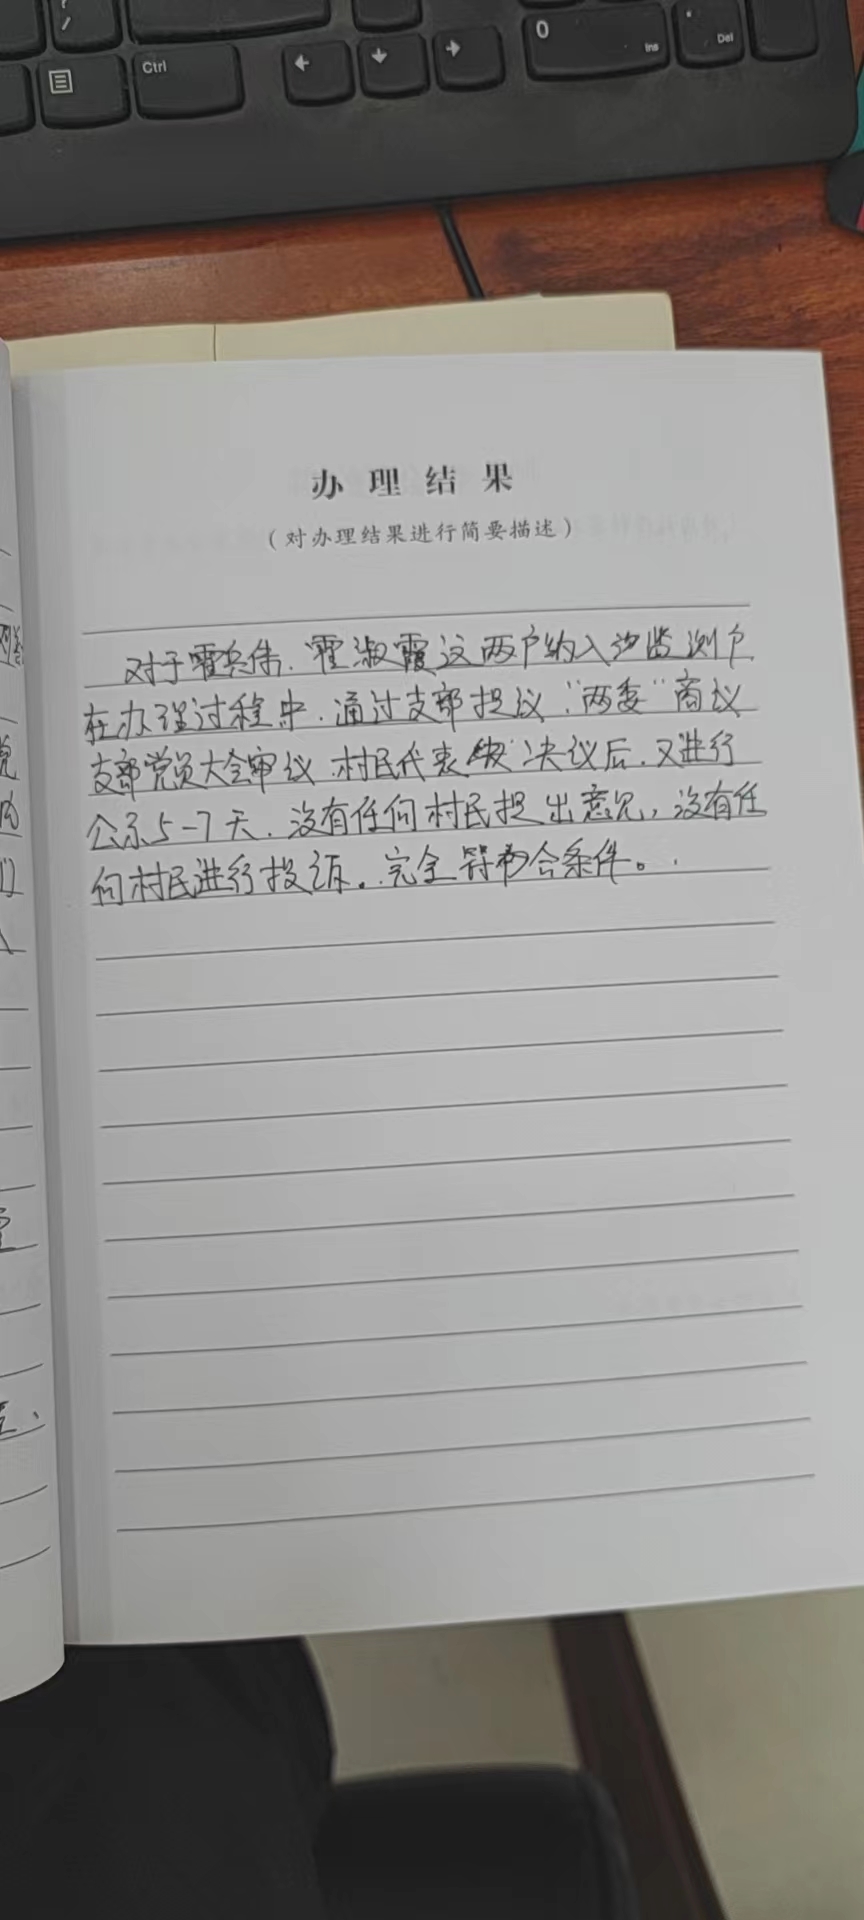 Ctrl
0
Ins
Del
办理结果
（对办理结果进行简要描述）
对于霍兵伟、霍淑霞这两户纳入边监测户
在办理过程中，通过支部提议，“两委”商议
支部党员大会审议，村民代表决议后，又进行
公示5-7天，没有任何村民提出意见，没有任
何村民进行投诉。完全符合条件。